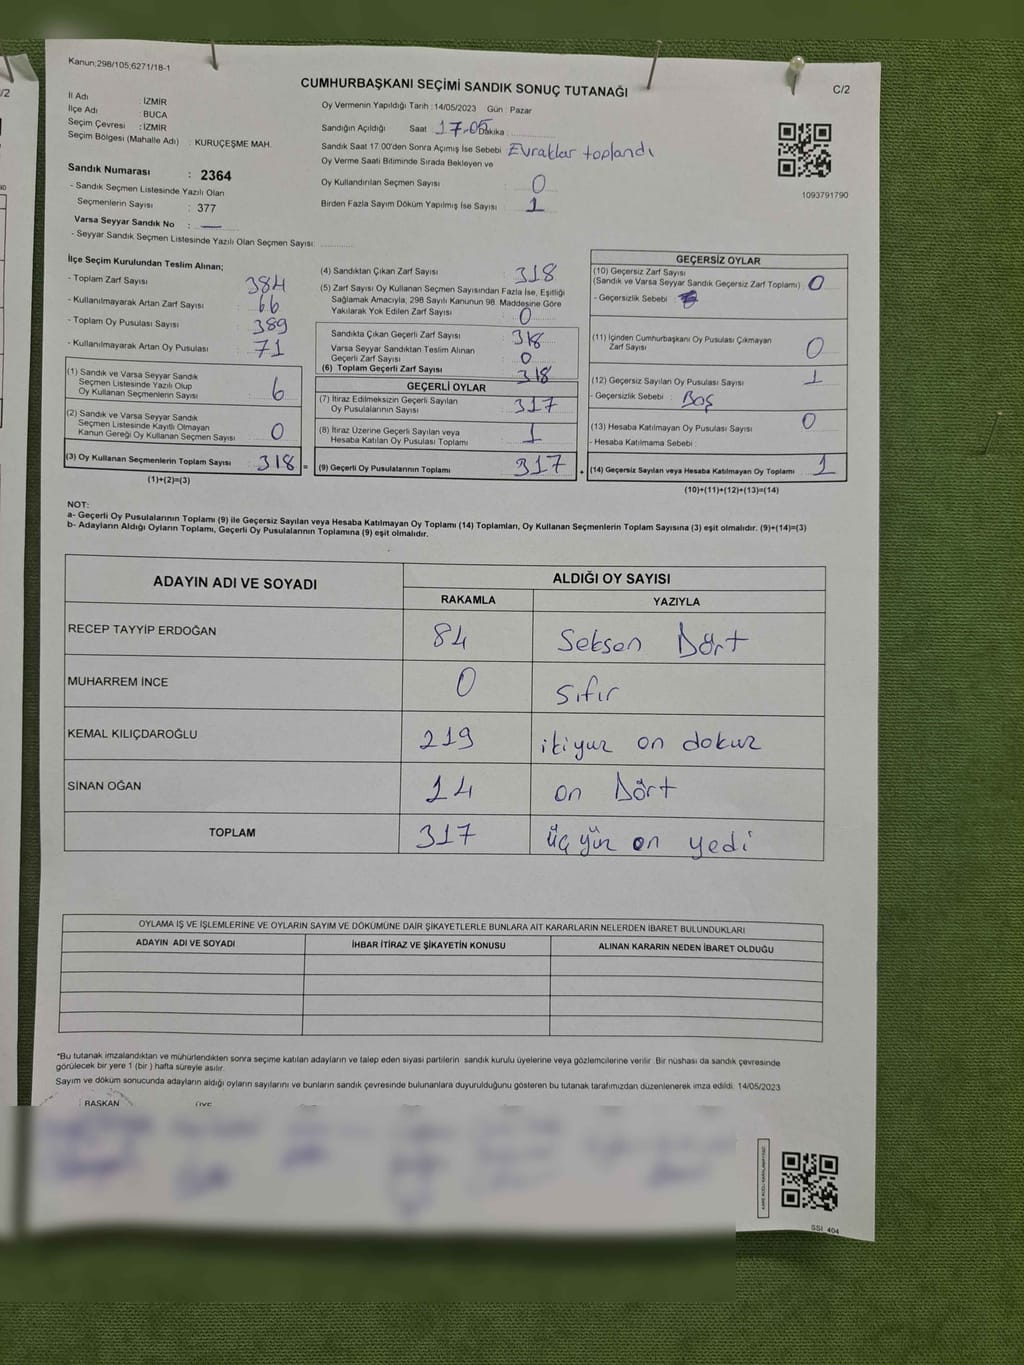 /2
Kanun;298/105;6271/18-1
CUMHURBAŞKANI SEÇİMİ SANDIK SONUÇ TUTANAĞI
C/2
İl Adı : İZMİR
İlçe Adı : BUCA
Seçim Çevresi : İZMİR
Seçim Bölgesi (Mahalle Adı) : KURUÇEŞME MAH.
Sandık Numarası : 2364
- Sandık Seçmen Listesinde Yazılı Olan
Seçmenlerin Sayısı : 377
Varsa Seyyar Sandık No : —
- Seyyar Sandık Seçmen Listesinde Yazılı Olan Seçmen Sayısı:
Oy Vermenin Yapıldığı Tarih : 14/05/2023 Gün : Pazar
Sandığın Açıldığı Saat 17.05 Dakika :
Sandık Saat 17:00'den Sonra Açımış İse Sebebi Evraklar toplandı
Oy Verme Saati Bitiminde Sırada Bekleyen ve
Oy Kullandırılan Seçmen Sayısı : 0
Birden Fazla Sayım Döküm Yapılmış İse Sayısı : 1
1093791790
İlçe Seçim Kurulundan Teslim Alınan;
- Toplam Zarf Sayısı : 384
- Kullanılmayarak Artan Zarf Sayısı : 66
- Toplam Oy Pusulası Sayısı : 389
- Kullanılmayarak Artan Oy Pusulası : 71
(1) Sandık ve Varsa Seyyar Sandık
Seçmen Listesinde Yazılı Olup
Oy Kullanan Seçmenlerin Sayısı : 6
(2) Sandık ve Varsa Seyyar Sandık
Seçmen Listesinde Kayıtlı Olmayan
Kanun Gereği Oy Kullanan Seçmen Sayısı : 0
(3) Oy Kullanan Seçmenlerin Toplam Sayısı : 318 =
(1)+(2)=(3)
(4) Sandıktan Çıkan Zarf Sayısı : 318
(5) Zarf Sayısı Oy Kullanan Seçmen Sayısından Fazla İse, Eşitliği
Sağlamak Amacıyla; 298 Sayılı Kanunun 98. Maddesine Göre
Yakılarak Yok Edilen Zarf Sayısı : 0
Sandıkta Çıkan Geçerli Zarf Sayısı : 318
Varsa Seyyar Sandıktan Teslim Alınan
Geçerli Zarf Sayısı : 0
(6) Toplam Geçerli Zarf Sayısı : 318
GEÇERLİ OYLAR
(7) İtiraz Edilmeksizin Geçerli Sayılan
Oy Pusulalarının Sayısı : 317
(8) İtiraz Üzerine Geçerli Sayılan veya
Hesaba Katılan Oy Pusulası Toplamı : 1
(9) Geçerli Oy Pusulalarının Toplamı : 317 +
GEÇERSİZ OYLAR
(10) Geçersiz Zarf Sayısı
(Sandık ve Varsa Seyyar Sandık Geçersiz Zarf Toplamı) : 0
- Geçersizlik Sebebi :
(11) İçinden Cumhurbaşkanı Oy Pusulası Çıkmayan
Zarf Sayısı : 0
(12) Geçersiz Sayılan Oy Pusulası Sayısı : 1
- Geçersizlik Sebebi : Boş
(13) Hesaba Katılmayan Oy Pusulası Sayısı : 0
- Hesaba Katılmama Sebebi :
(14) Geçersiz Sayılan veya Hesaba Katılmayan Oy Toplamı : 1
(10)+(11)+(12)+(13)=(14)
NOT:
a- Geçerli Oy Pusulalarının Toplamı (9) ile Geçersiz Sayılan veya Hesaba Katılmayan Oy Toplamı (14) Toplamları, Oy Kullanan Seçmenlerin Toplam Sayısına (3) eşit olmalıdır. (9)+(14)=(3)
b- Adayların Aldığı Oyların Toplamı, Geçerli Oy Pusulalarının Toplamına (9) eşit olmalıdır.
ADAYIN ADI VE SOYADI
ALDIĞI OY SAYISI
RAKAMLA YAZIYLA
RECEP TAYYİP ERDOĞAN 84 Seksen Dört
MUHARREM İNCE 0 Sıfır
KEMAL KILIÇDAROĞLU 219 ikiyuz on dokuz
SİNAN OĞAN 14 on Dört
TOPLAM 317 üç yüz on yedi
OYLAMA İŞ VE İŞLEMLERİNE VE OYLARIN SAYIM VE DÖKÜMÜNE DAİR ŞİKAYETLERLE BUNLARA AİT KARARLARIN NELERDEN İBARET BULUNDUKLARI
ADAYIN ADI VE SOYADI İHBAR İTİRAZ VE ŞİKAYETİN KONUSU ALINAN KARARIN NEDEN İBARET OLDUĞU
*Bu tutanak imzalandıktan ve mühürlendikten sonra seçime katılan adayların ve talep eden siyasi partilerin sandık kurulu üyelerine veya gözlemcilerine verilir. Bir nüshası da sandık çevresinde
görülecek bir yere 1 (bir ) hafta süreyle asılır.
Sayım ve döküm sonucunda adayların aldığı oyların sayılarını ve bunların sandık çevresinde bulunanlara duyurulduğunu gösteren bu tutanak tarafımızdan düzenlenerek imza edildi. 14/05/2023
BAŞKAN ÜYE
SSI 404